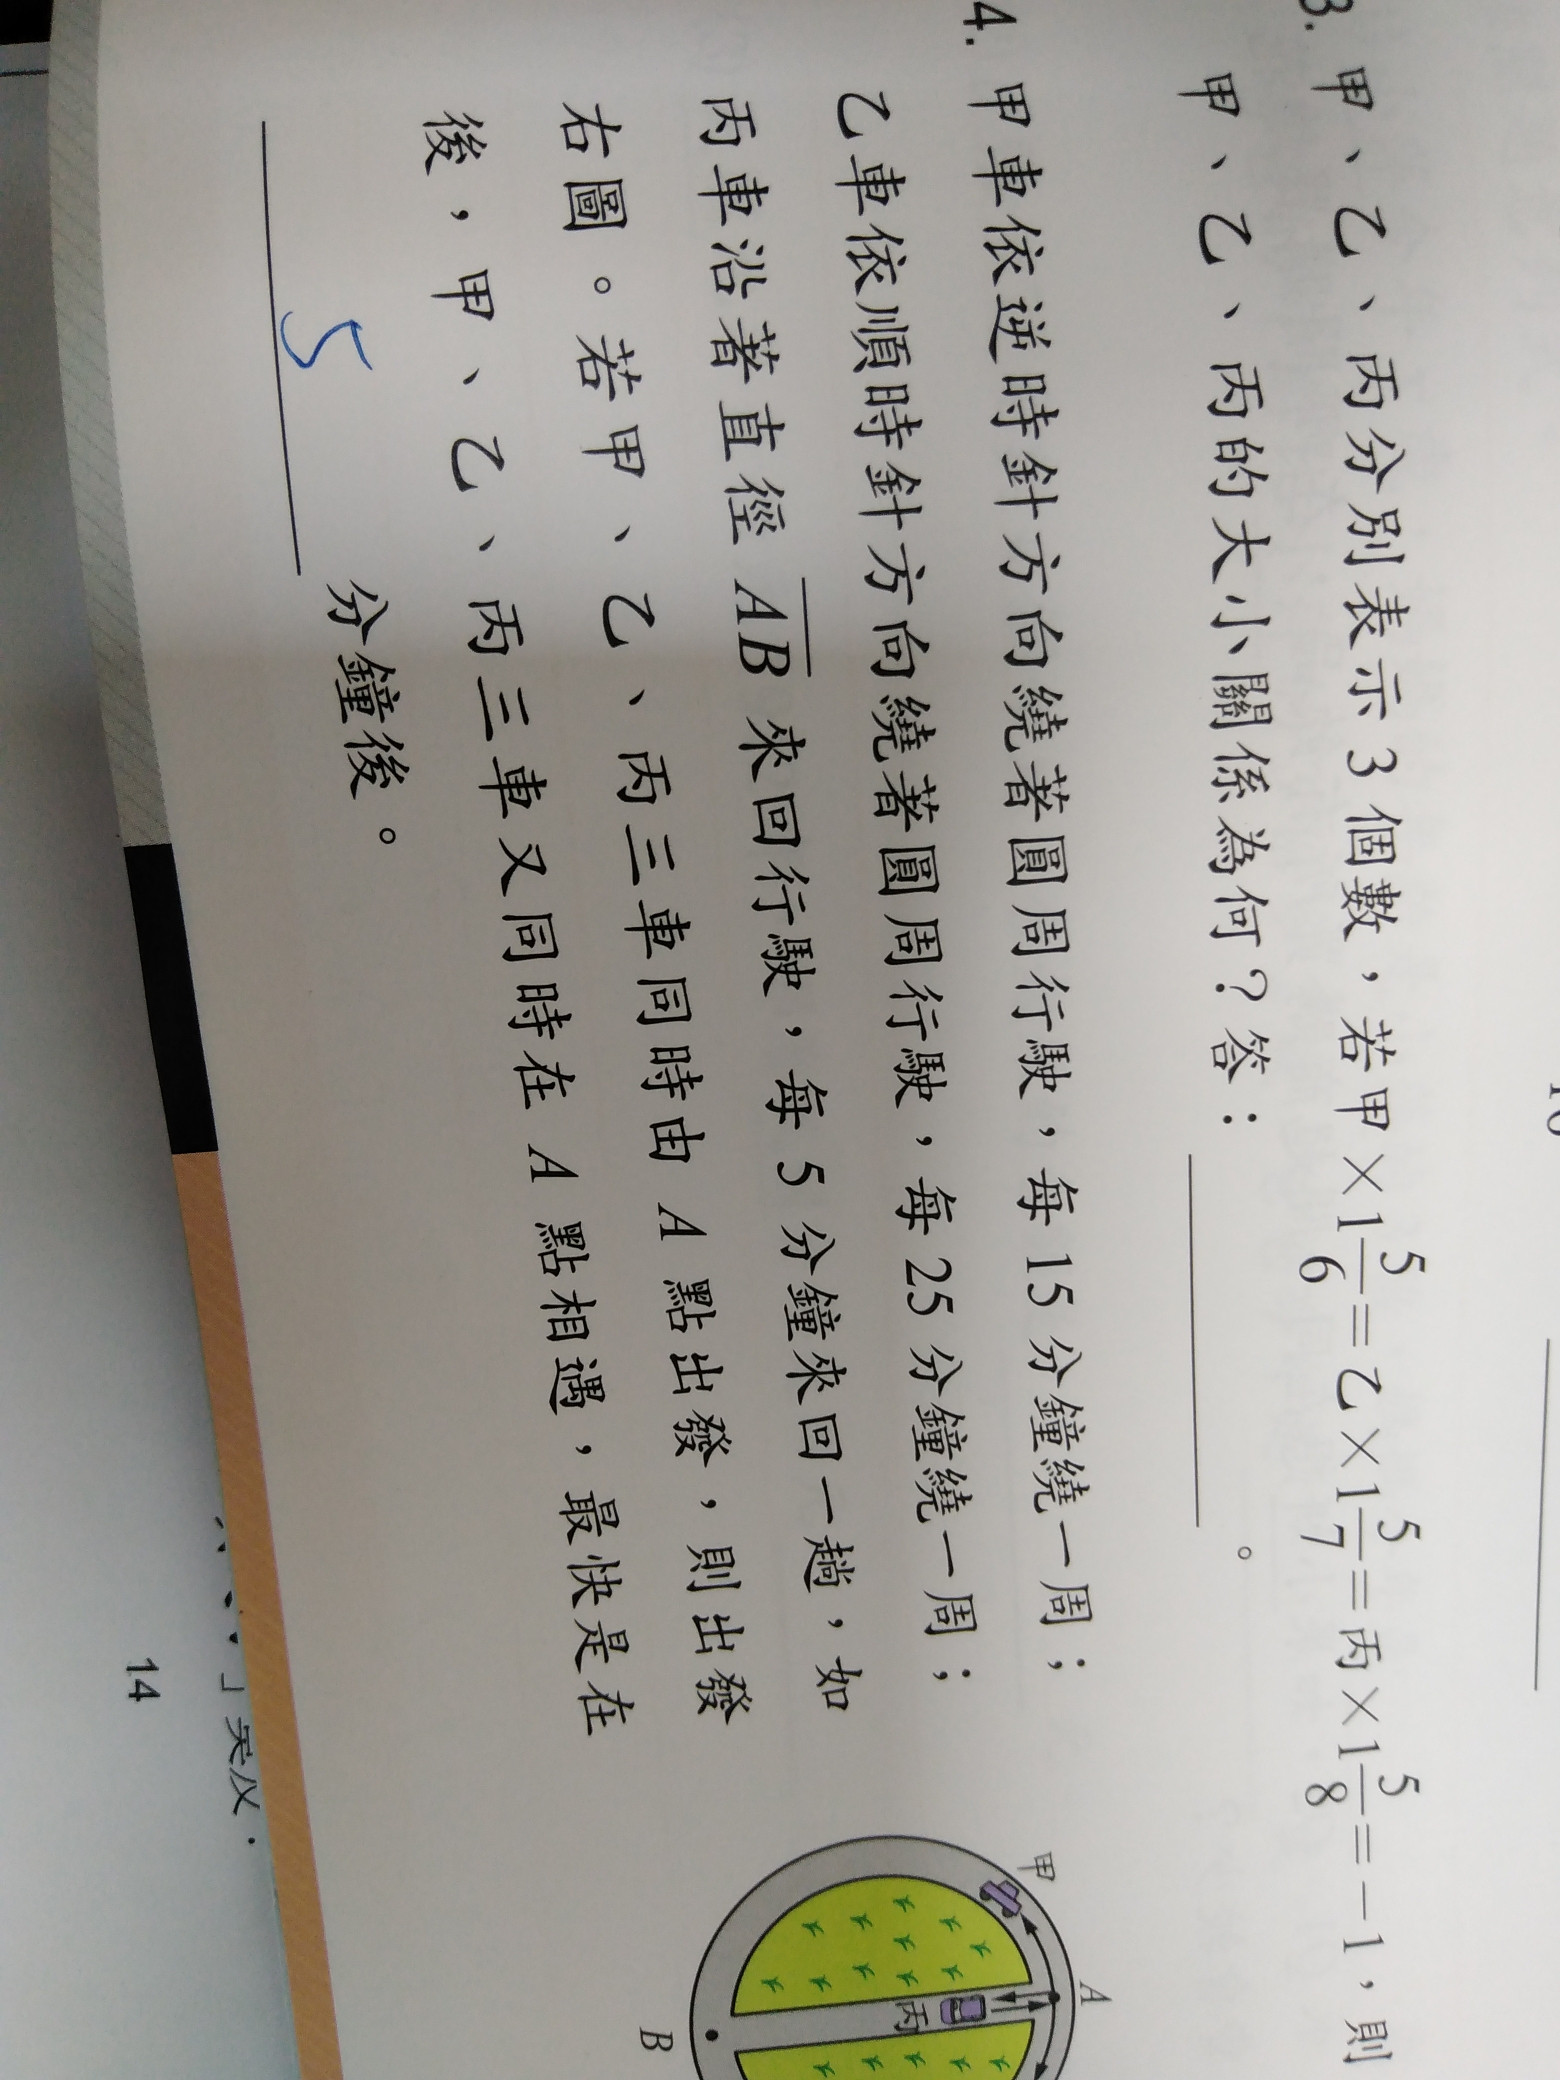 10
3. 甲、乙、丙分別表示 3 個數，若甲×1 5/6＝乙×1 5/7＝丙×1 5/8＝－1，則
甲、乙、丙的大小關係為何？答：＿＿＿＿。
4. 甲車依逆時針方向繞著圓周行駛，每 15 分鐘繞一周；
乙車依順時針方向繞著圓周行駛，每 25 分鐘繞一周；
丙車沿著直徑 AB 來回行駛，每 5 分鐘來回一趟，如
右圖。若甲、乙、丙三車同時由 A 點出發，則出發
後，甲、乙、丙三車又同時在 A 點相遇，最快是在
5 分鐘後。
甲
A
丙
B
14